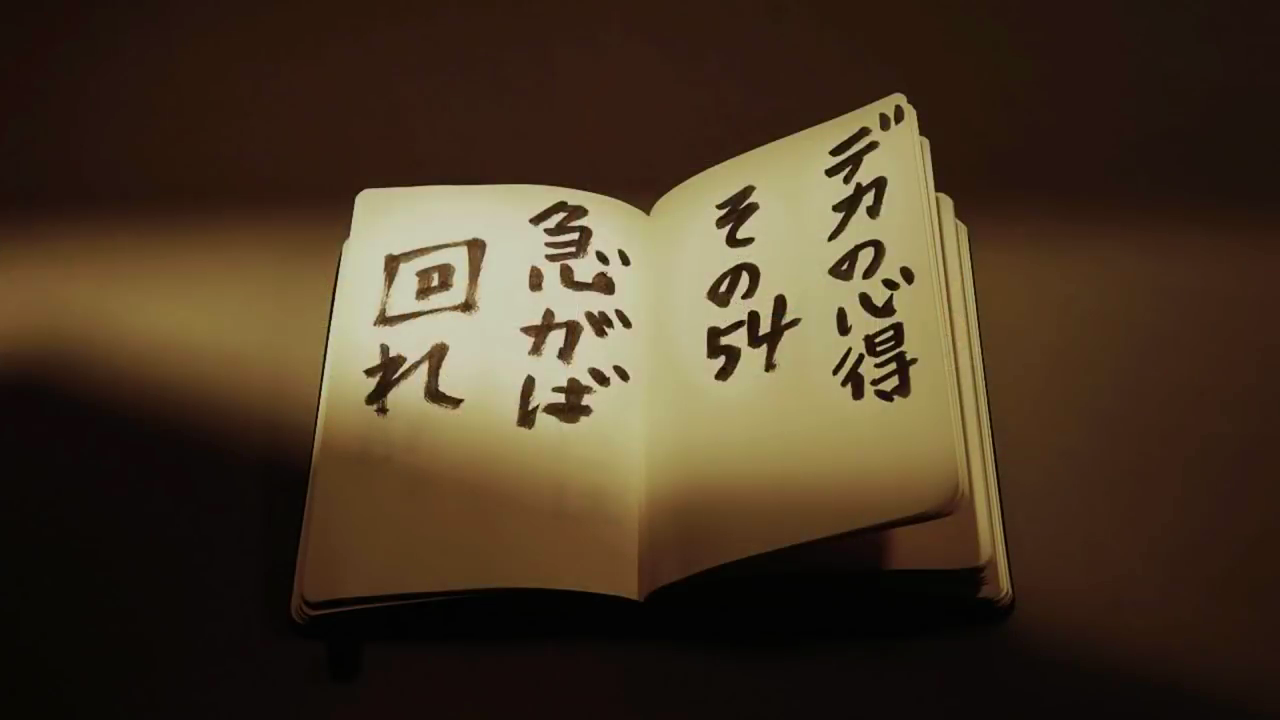 デカの心得
その54
急がば
回れ